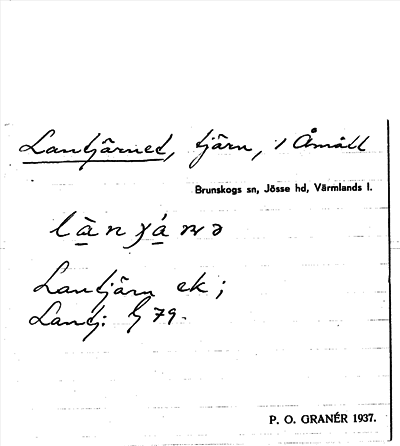 Lantjärnet, tjärn, i Åmått
Brunskogs sn, Jösse hd, Värmlands l.
Lantjärn ek;
Lantj. G 79.
P. O. GRANÉR 1937.